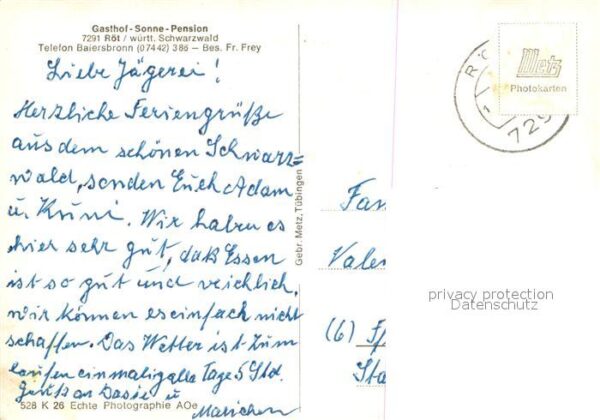 Gasthof - Sonne - Pension
7291 Röt / württ. Schwarzwald
Telefon Baiersbronn (07442) 386 – Bes. Fr. Frey
Liebe Jägerei!
Herzliche Feriengrüße
aus dem schönen Schwarz=
wald, senden Euch Adam
u. Kuni. Wir haben es
hier sehr gut, daß Essen
ist so gut und reichlich,
wir können es einfach nicht
schaffen. Das Wetter ist zum
laufen einmalig alle Tage 5 Std.
Gruß an Dasie u
Mariechen
528 K 26 Echte Photographie AOe
Gebr. Metz, Tübingen
Metz
Photokarten
RÖ
1
729
Fam
Valen
(6)
Sta
privacy protection
Datenschutz